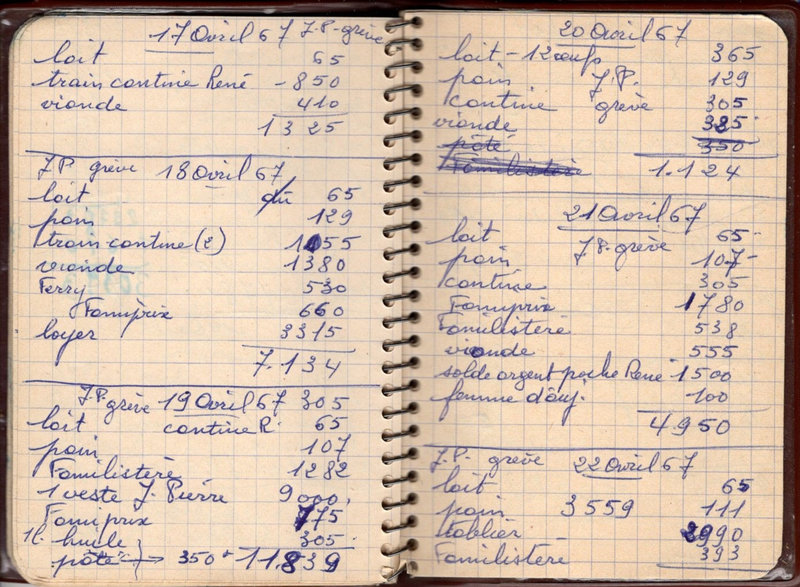 17 Avril 67 J.P. grève
lait 65
train cantine René - 850
viande 410
1325
J.P. grève 18 avril 67
lait du 65
pain 129
train cantine (2) 1055
viande 1380
Ferry 530
Famiprix 660
loyer 3315
7.134
J.P. grève 19 Avril 67 305
lait cantine R. 65
pain 107
Familistère 1282
1 veste J. Pierre 9000,
Famiprix 775
1l. huile 305
pâté 350 + 11.839
20 Avril 67
lait - 12 oeufs 365
pain J.P. 129
cantine grève 305
viande 325
pâté 350
Familistère 1.124
21 Avril 67
lait 65
pain J.P. grève 107
cantine 305
Famiprix 1780
Familistère 538
viande 555
solde argent poche René 1500
femme d'auj. 100
4950
J.P. grève 22 Avril 67
lait 65
pain 3559 111
tablier 2990
Familistère 393